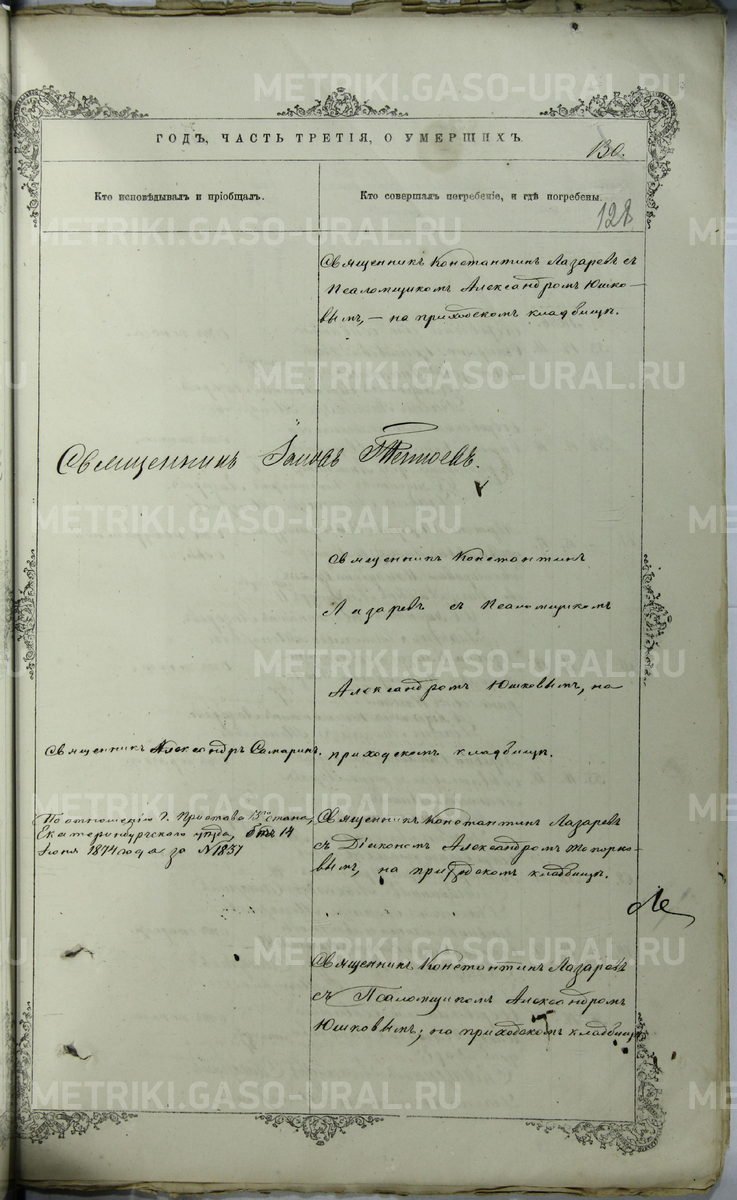 METRIKI.GASO-URAL.RU
ГОДЪ, ЧАСТЬ ТРЕТІЯ, О УМЕРШИХЪ.
130.
Кто исповѣдывалъ и пріобщалъ.
Кто совершалъ погребеніе, и гдѣ погребены.
128
Священникъ Константинъ Лазаревъ съ
Псаломщикомъ Александромъ Юшко-
вымъ, – на приходскомъ кладбищѣ.
Священникъ
Священникъ Константинъ
Лазаревъ съ Псаломщикомъ
Александромъ Юшковымъ, на
приходскомъ кладбищѣ.
Священникъ Александръ Самаринъ.
По отношенію Г. Пристава стана,
Екатеринбургскаго уѣзда, отъ 14
Іюня 1874 года за №1857
Священникъ Константинъ Лазаревъ
съ Діакономъ Александромъ Топорко-
вымъ, на приходскомъ кладбищѣ.
Священникъ Константинъ Лазаревъ
съ Псаломщикомъ Александромъ
Юшковымъ, на приходскомъ кладбищѣ